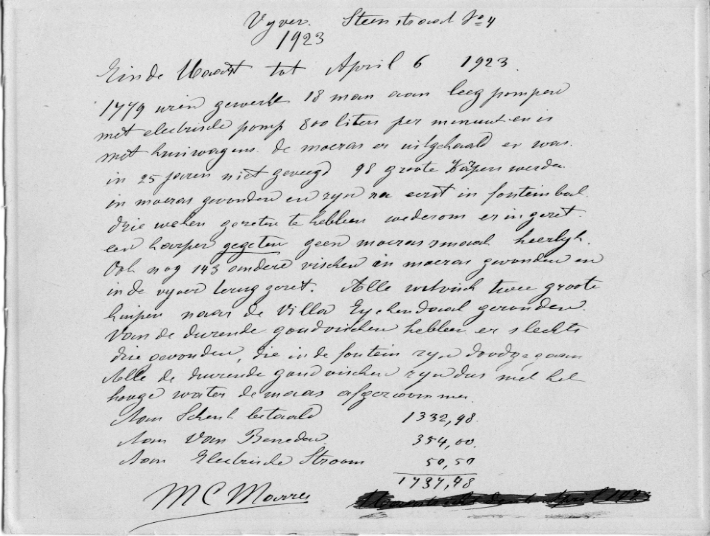 Vyver. Steenstraat No 4
1923
Einde Maart tot April 6 1923.
1779 uren gewerkt 18 man aan leeg pompen
met electrische pomp 800 liters per minuut en is
met kruiwagens de moeras er uitgehaald er was
in 25 jaren niet geveegd 98 groote karpers werden
in moeras gevonden en zyn na eerst in fontein bak
drie weken gezeten te hebben wederom er in gezet.
een karper gegeten geen moeras smaak heerlyk.
Ook nog 143 andere visschen in moeras gevonden en
in de vyver terug gezet. Alle witvisch twee groote
karpers naar de Villa gezonden.
Van de durende goudvisschen hebben er slechts
drie gevonden, die in de fontein zyn doodgegaan
Alle de durende goudvisschen zyn dus met het
hooge water de maas afgezwommen.
Aan Schenk betaald 1332,98.
Aan Van Beneden 354,00.
Aan Electrische Stroom 50,50
1737,48
M C Marres